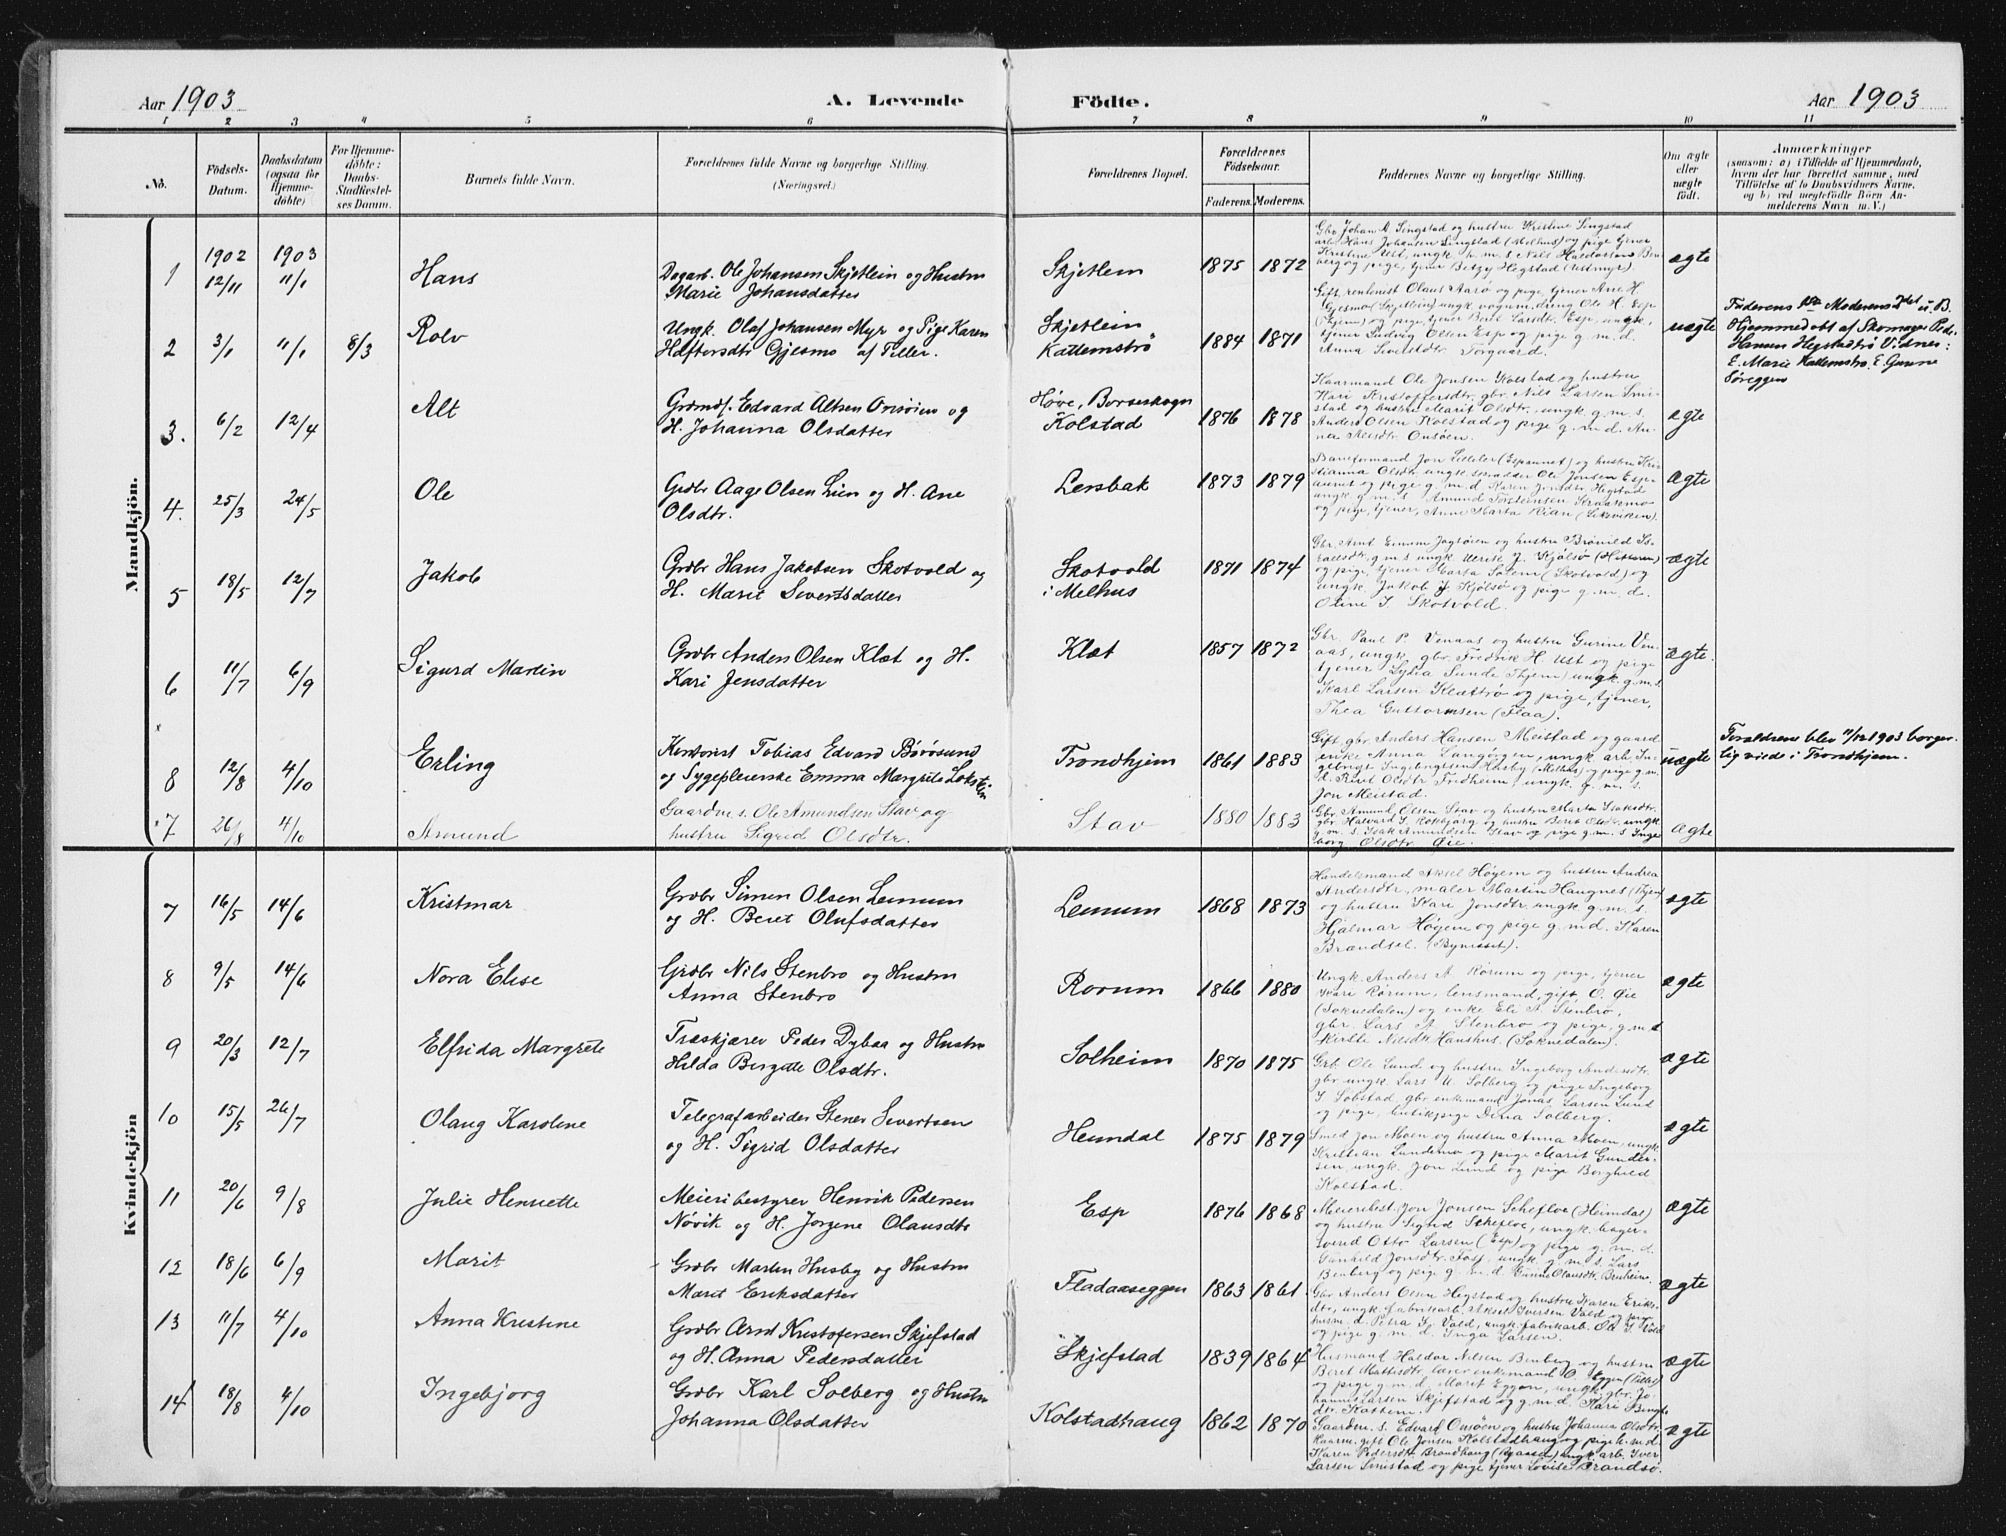 Aar 1903
A. Levende Födte.
Aar 1903
1 2 3 4 5 6 7 8 9 10 11
No.
Födsels-
Datum.
Daabsdatum
(ogsaa for
Hjemme-
döbte)
For Hjemme-
döbte:
Daabs-
Stadfæstel-
ses Datum.
Barnets fulde Navn.
Forældrenes fulde Navne og borgerlige Stilling.
(Næringsvei.)
Forældrenes Bopæl.
Forældrenes
Födselsaar.
Faderens. Moderens.
Faddernes Navne og borgerlige Stilling.
Om ægte
eller
uægte
født.
Anmærkninger
(saasom: a) i Tilfælde af Hjemmedaab,
hvem der har forrettet samme, med
Tilföielse af to Daabsvidners Navne,
og b) ved uægtefödte Börn An-
melderens Navn m. V.)
Mandkjön.
1
1902
12/11
1903
11/1
Hans
Dagarb. Ole Johansen Skjetlein og Hustru
Marie Johansdatter
Skjetlein
1875 1872
Gbr Johan A Lingstad og hustru Kristine Lingstad
arb. Hans Johansen Lingstad (Melhus) og pige tjener
Kristine Ust, ungk. g. m. s. Nils Haldorsen Ben-
berg og pige, tjener Betzy Hegstad (Ustmyr).
ægte
2 3/1 11/1 8/3
Rolv
Ungk. Olaf Johansen Myr og Pige Karen
Haftorsdtr Gjesmo af Tiller.
Skjetlein
Kattemstrø
1884 1871
Gift rentenist Olaus Aarø og pige, tjener Ane H.
Gjesmo (Skjetlein) ungk. vognm.dreng Ole H. Esp
(Hjem) og pige, tjener Berit Larsdtr. Esp, ungk.
tjener Ludvig Olsen Esp og pige g. m. d.
Anna Sivertsdtr. Torgaard.
uægte
Faderens 1ste Moderens 2det u. B.
Hjemmedøbt af Skomager Peder
Hansen Hegstadtrø Vidner:
E. Marie Kattemstrø. E. Gunne
Søreggen
3. 6/2 12/4
Alt
Grdmd. Edvard Altsen Onsøien og
H. Johanna Olsdatter
Høve, Borseskogn
Kolstad
1876 1878
Kaarmand Ole Jonsen Kolstad og hustru
Kari Kristoffersdtr. gbr. Nils Larsen Smi-
stad og hustru Marit Olsdtr. ungk. g. m. s.
Anders Olsen Kolstad og pige g. m. d. An-
na Altsdtr. Onsøen.
ægte
4. 25/3 24/5
Ole
Grdbr Aage Olsen Lien og H. Ane
Olsdtr.
Lersbak
1873 1879
Baneformand Jon Lilleler (Espaunet) og hustru Kri-
stianna Olsdtr. ungk. Ole Jonsen Esp-
aunet og pige g. m. d. Karen Jonsdtr. Hegstad
ungk. g. m. s. Amund Torsteinsen Kraakmo
og pige, tjener, Anne Marta Rian (Leksviken).
ægte
5 18/5 12/7
Jakob
Grdbr Hans Jakobsen Skotvold og
H. Marit Sivertsdatter
Skotvold
i Melhus
1871 1874
Gbr. Arnt Jagtøien og hustru Brønild
g. m. s. ungk. Ulrik J. Kjølsø (Hitteren)
og pige, tjener Marta Solem (Skotvold) og
ungk. Jakob J. Kjølsø og pige g. m. d.
Oline J. Skotvold.
ægte
6 11/7 6/9
Sigurd Martin
Grdbr Anders Olsen Klæt og H.
Kari Jensdatter
Klæt
1857 1872
Gbr. Paul P. Venaas og hustru Gurine Ven-
aas, ungk. gbr. Fredrik H. Ust og pige
tjener Lydia Sunde (hjem) ungk. g. m. s.
Karl Larsen Klættrø og pige, tjener,
Thea Guttormsen (Flaa).
ægte.
8 12/8 4/10
Erling
Kontorist Tobias Edvard Børøsund
og Sygepleierske Emma Margrete Løkstein
Trondhjem
1861 1883
Gift gbr. Anders Hansen Meistad og gaard-
enke Anna Langørgen, ungk. arb. In-
gebrigt Ingebrigtsen Husby (Melhus) og pige g. m.
d. Berit Olsdtr. Fredheim, ungk. g. m. s.
Jon Meistad.
uægte
Forældrene blev 11/12 1903 borger-
lig viede i Trondhjem.
7 26/8 4/10
Amund
Gaardm. s. Ole Amundsen Stav og
hustru Sigrid Olsdtr.
Stav
1880 1883
Gbr. Amund Olsen Stav og hustru Marta Isaksdtr.
gbr. Halvard I. Rokbjørg og hustru Beret Olsdtr. ungk
g. m. s. Isak Amundsen Stav og pige g. m. s Inge-
borg Olsdtr. Øie.
ægte
Kvindekjön
7 16/5 14/6
Kristmar
Grdbr Simen Olsen Lemum
og H. Beret Olufsdatter
Lemum
1868 1873
Handelsmand Aksel Høyem og hustru Andrea
Andersdtr., maler Martin Haugnes (hjem)
og hustru Kari Jonsdtr. ungk. g. m. s.
Hjalmar Høyem og pige g. m. d. Karen
Brændsel. (Bynæsset).
ægte
8 9/5 14/6
Nora Elise
Grdbr Nils Stenbro og Hustru
Anna Stenbro
Rorum
1866 1880
Ungk. Anders A. Rørum og pige, tjener
Kari Rørum, lensmand, gift, O. Øie
(Soknedalen) og enke Eli A. Stenbro,
gbr. Lars A. Stenbro og pige, g. m. d
Kirsti Nilsdtr. Haushus. (Soknedalen).
ægte
9 20/3 12/7
Elfrida Margrete
Træskjærer Peder Dybaa og Hustru
Hilda Bergitte Olsdtr.
Solheim
1870 1875
Gbr. Ole Lund og hustru Ingeborg Andersdtr.
gbr. ungk. Lars U. Solberg og pige Ingeborg
J. Søbstad, gbr. enkemand Jonas Larsen Lund
og pige, butikpige Dina Solberg.
ægte
10 15/5 26/7
Olaug Karoline
Telegrafarbeider Stener Sivertsen
og H. Sigrid Olsdatter
Heimdal
1875 1879
Smed Jon Moen og hustru Anna Moen, ungk.
Kristian Lundemo og pige Marit Gunder-
sen, ungk. Jon Lund og pige Borghild
Kolstad.
ægte
11 20/6 9/8
Julie Henriette
Meieribestyrer Henrik Pedersen
Nøvik og H. Jørgine Olausdtr
Esp
1876 1868
Meieribest. Jon Jonsen Schefloe (Heimdal)
og hustru Sigrid Schefloe, ungk. bager-
svend Otto Larsen (Esp) og pige g. m. d.
Gunhild Jonsdtr. Foss, ungk. g. m. s. Lars
Benberg og pige g. m. d. Gunne Olausdtr. Bruheim.
ægte
12 18/6 6/9
Marit
Grdbr Martin Husby og Hustru
Marit Eriksdatter
Fladaaseggen
1863 1861.
Gbr. Anders Olsen Hegstad og hustru Karen Eriks-
dtr., ungk. fabrikarb. Aksel Iversen Vold, og pige
husm. d. Petra I. Vold, ungk. fabrikarb. Ole I. Vold
og pige g. m. d. Inga Larsen.
ægte
13 11/7 4/10
Anna Kristine
Grdbr Arnt Kristofersen Skjefstad
og H. Anna Pedersdatter
Skjefstad
1839 1864
Husmand Haldor Nilsen Benberg og hustru
Beret Mattisdtr. lærer enkemand O. Eggen (Tiller)
og pige g. m. d. Marit Eggen, ungk. gbr. Jo-
hannes Larsen Skjefstad og g. m. d. Kari Bengts-
dtr. Kattem.
ægte
14 18/8 4/10
Ingebjørg
Grdbr Karl Solberg og Hustru
Johanna Olsdatter
Kolstadhaug
1862 1870
Gaardm. s. Edvard Onsøen og hustru Johanna Olsdtr.
kaarm. gift Ole Jonsen Kolstadhaug og pige k. m. d.
Karen Pedersdtr Brandhaug (Byaasen) ungk. arb. Iver
Larsen Smistad og pige tjener Lovise Brandsø.
ægte